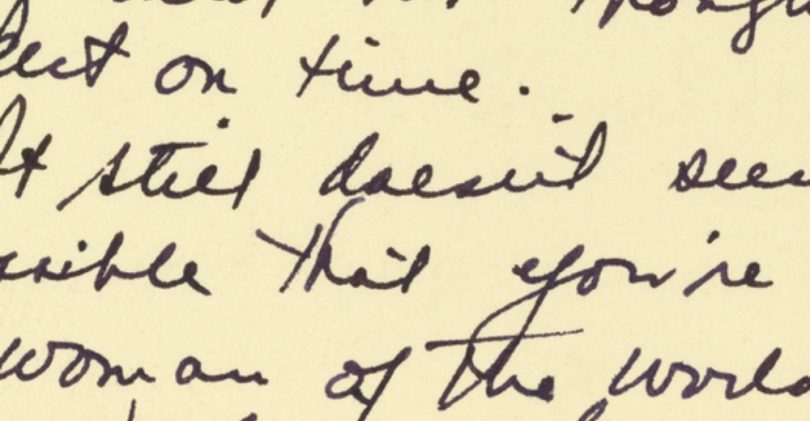 on time.
It still doesn't seem
ssible that you're
woman of the world